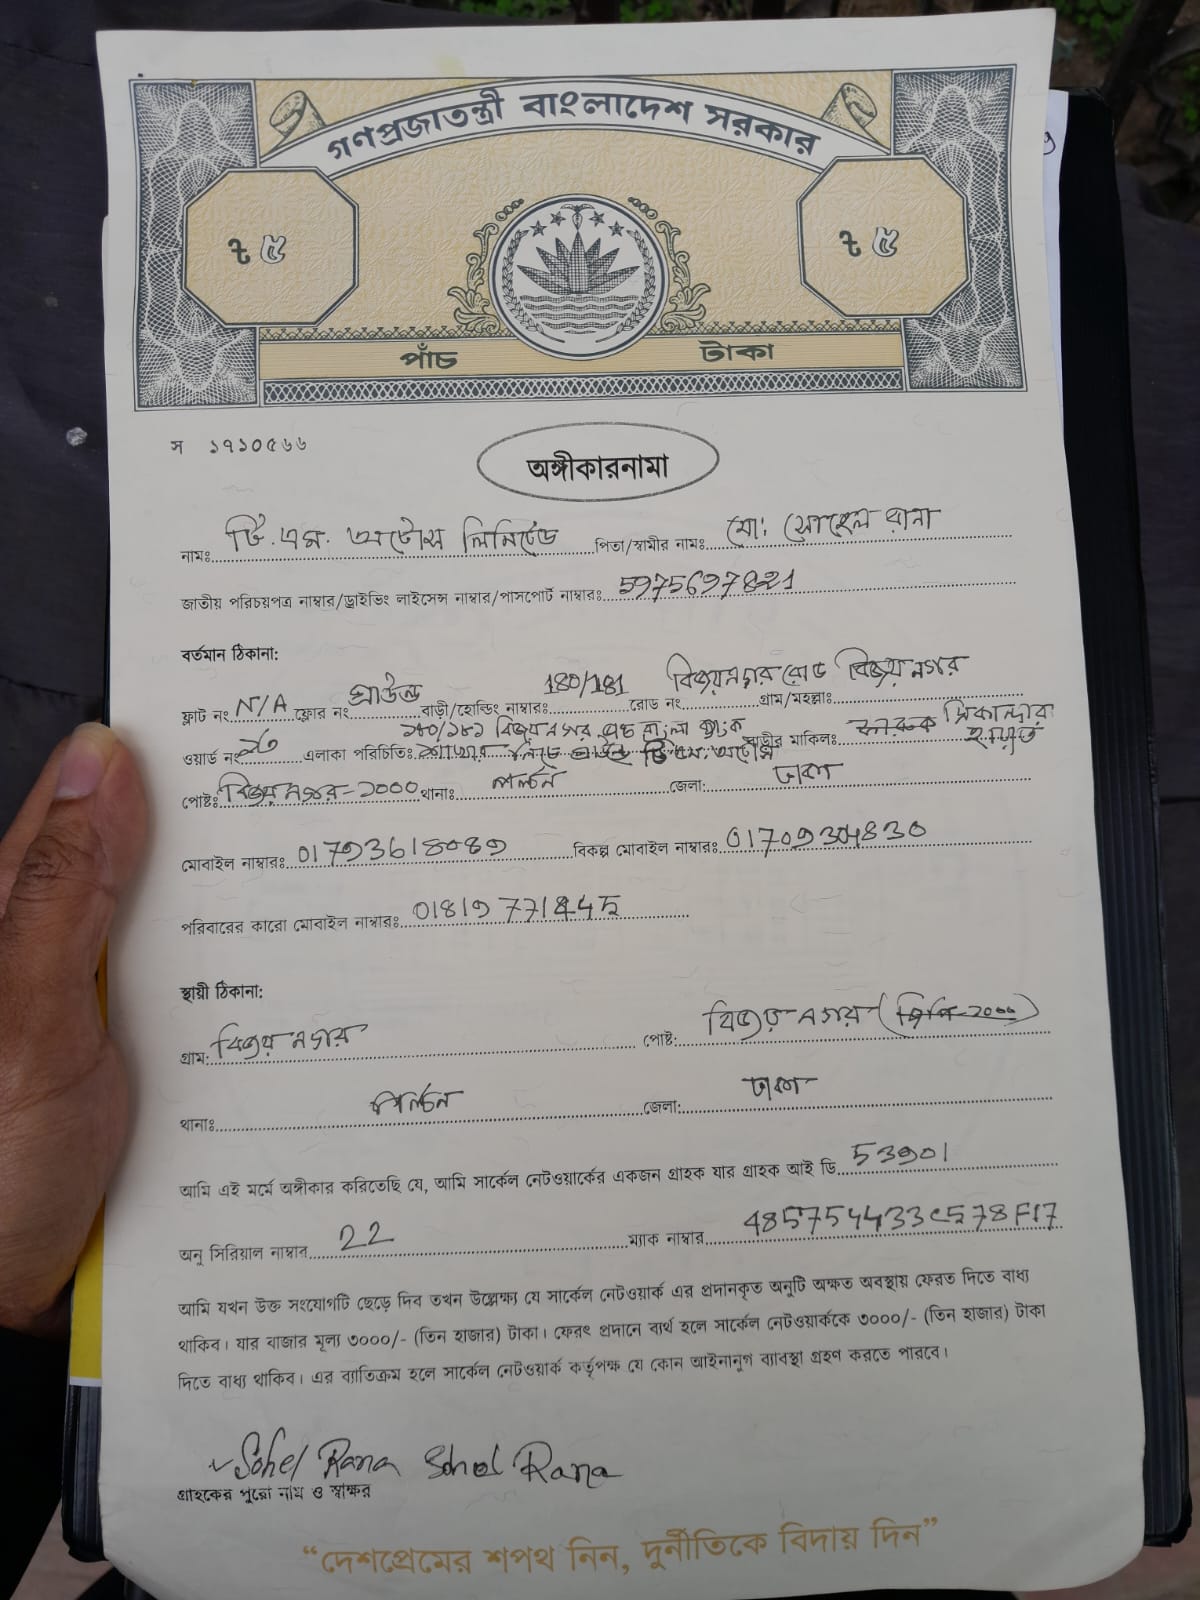 গণপ্রজাতন্ত্রী বাংলাদেশ সরকার
৳ ৫
৳ ৫
পাঁচ টাকা
স ১৭১০৫৬৬
অঙ্গীকারনামা
নামঃ টি.এম. অটোস লিমিটেড পিতা/স্বামীর নামঃ মো: সোহেল রানা
জাতীয় পরিচয়পত্র নাম্বার/ড্রাইভিং লাইসেন্স নাম্বার/পাসপোর্ট নাম্বারঃ 5975697821
বর্তমান ঠিকানা:
ফ্লাট নং N/A ফ্লোর নং গ্রাউন্ড বাড়ী/হোল্ডিং নাম্বারঃ 180/181 রোড নং বিজয়নগর রোড গ্রাম/মহল্লাঃ বিজয় নগর
ওয়ার্ড নং এলাকা পরিচিতিঃ ১৮০/১৮১ বিজয় নগর বাড়ীর মালিক: সিকান্দার হায়াত
পোষ্টঃ বিজয় নগর-১০০০ থানাঃ পল্টন জেলা: ঢাকা
মোবাইল নাম্বারঃ 01793618089 বিকল্প মোবাইল নাম্বারঃ 01709304830
পরিবারের কারো মোবাইল নাম্বারঃ
স্থায়ী ঠিকানা:
গ্রাম: বিজয় নগর পোষ্ট: বিজয় নগর
থানাঃ পল্টন জেলা: ঢাকা
আমি এই মর্মে অঙ্গীকার করিতেছি যে, আমি সার্কেল নেটওয়ার্কের একজন গ্রাহক যার গ্রাহক আই ডি 53901
অনু সিরিয়াল নাম্বার 22 ম্যাক নাম্বার
আমি যখন উক্ত সংযোগটি ছেড়ে দিব তখন উল্লেক্ষ্য যে সার্কেল নেটওয়ার্ক এর প্রদানকৃত অনুটি অক্ষত অবস্থায় ফেরত দিতে বাধ্য
থাকিব। যার বাজার মূল্য ৩০০০/- (তিন হাজার) টাকা। ফেরৎ প্রদানে ব্যর্থ হলে সার্কেল নেটওয়ার্ককে ৩০০০/- (তিন হাজার) টাকা
দিতে বাধ্য থাকিব। এর ব্যাতিক্রম হলে সার্কেল নেটওয়ার্ক কর্তৃপক্ষ যে কোন আইনানুগ ব্যাবস্থা গ্রহণ করতে পারবে।
Sohel Rana Sohel Rana
গ্রাহকের পুরো নাম ও স্বাক্ষর
“দেশপ্রেমের শপথ নিন, দুর্নীতিকে বিদায় দিন”